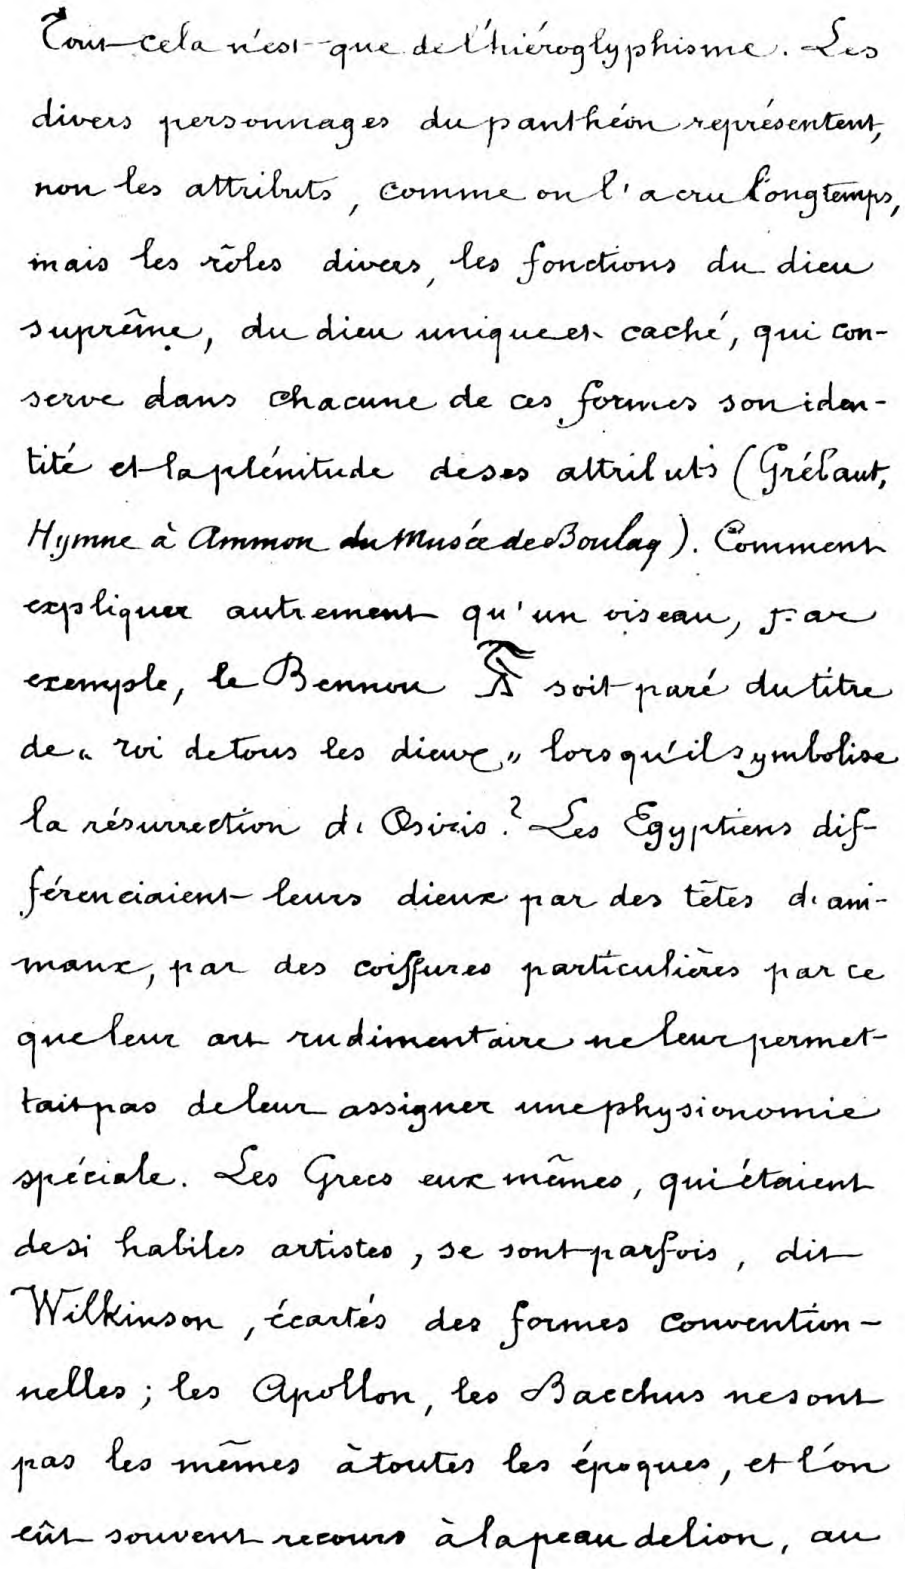 Tout cela n'est que de l'hiéroglyphisme. Les
divers personnages du panthéon représentent,
non les attributs, comme on l'a cru longtemps,
mais les rôles divers, les fonctions du dieu
suprême, du dieu unique et caché, qui con-
serve dans chacune de ces formes son iden-
tité et la plénitude de ses attributs (Grébaut,
Hymne à Ammon du Musée de Boulaq). Comment
expliquer autrement qu'un oiseau, par
exemple, le Bennou soit paré du titre
de « roi de tous les dieux » lorsqu'il symbolise
la résurrection d'Osiris ? Les Egyptiens dif-
férenciaient leurs dieux par des têtes d'ani-
maux, par des coiffures particulières parce
que leur art rudimentaire ne leur permet-
tait pas de leur assigner une physionomie
spéciale. Les Grecs eux mêmes, qui étaient
de si habiles artistes, se sont parfois, dit
Wilkinson, écartés des formes convention-
nelles ; les Apollon, les Bacchus ne sont
pas les mêmes à toutes les époques, et l'on
eût souvent recours à la peau de lion, au